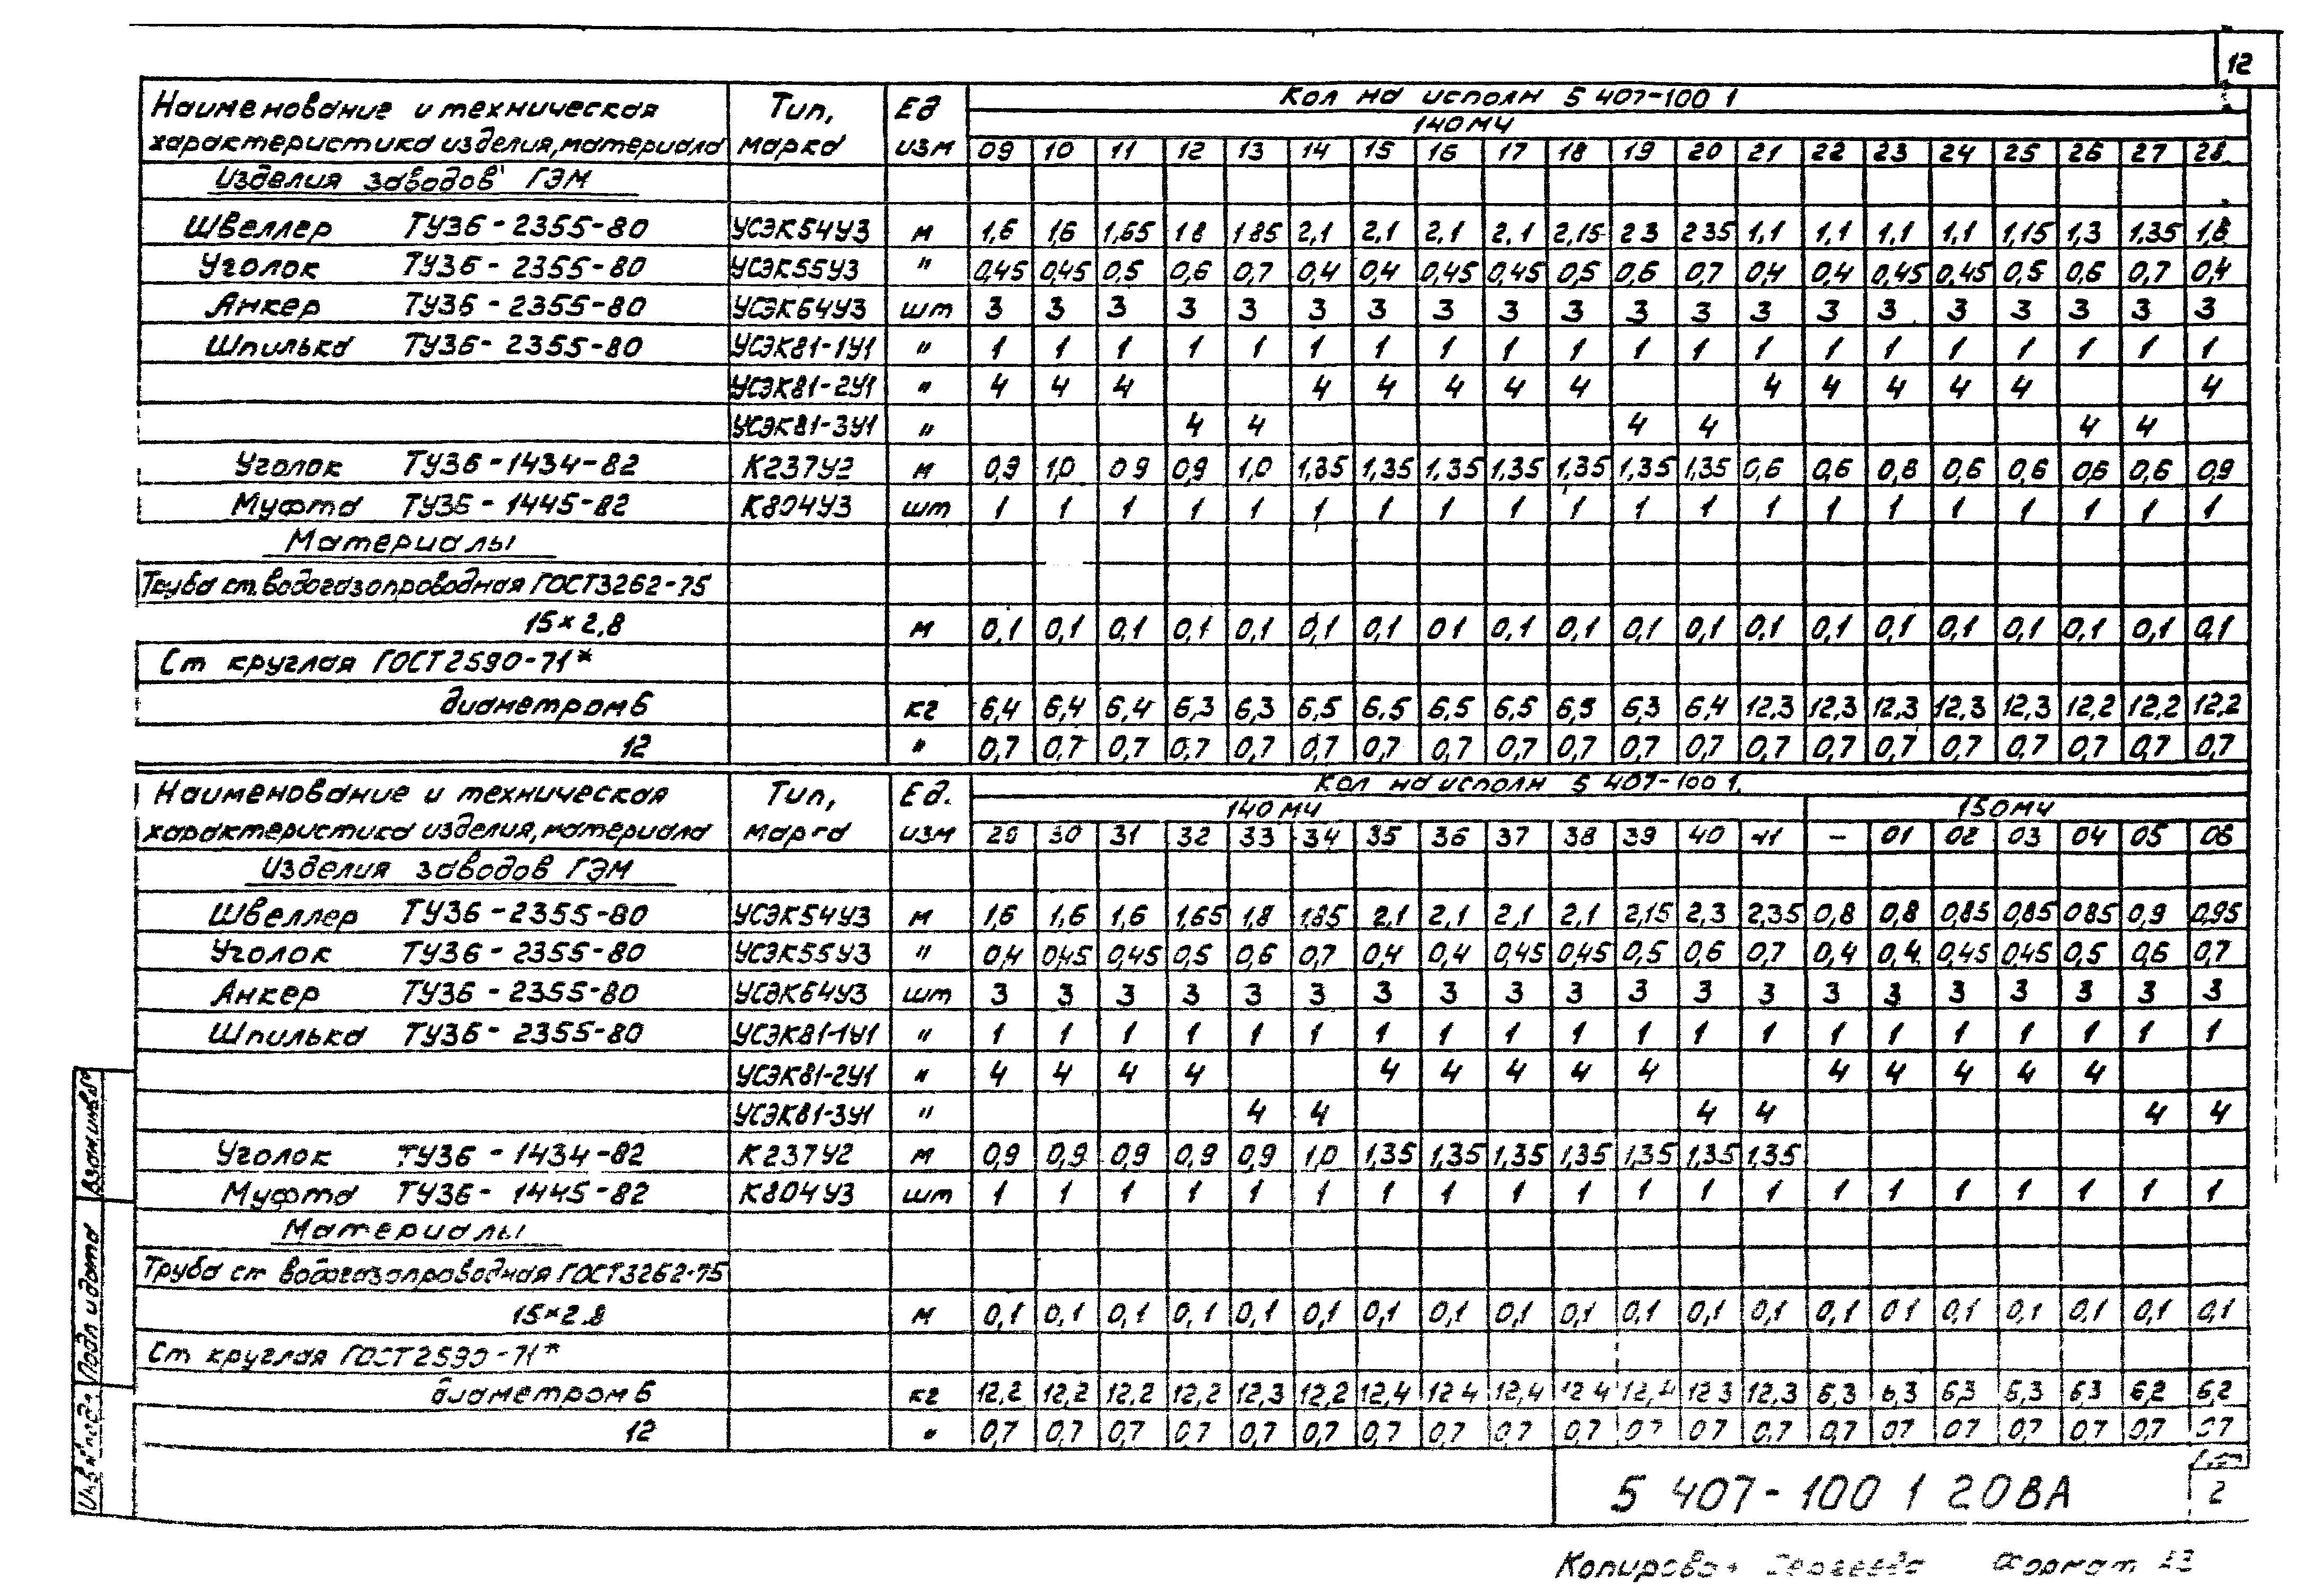 12
Наименование и техническая Тип, Ед Кол на исполн 5 407-100 1
140МЧ
характеристика изделия, материала марка изм 09 10 11 12 13 14 15 16 17 18 19 20 21 22 23 24 25 26 27 28
Изделия заводов ГЭМ
Швеллер ТУ36-2355-80 УСЭК54У3 м 1,6 1,6 1,65 18 1,85 2,1 2,1 2,1 2,1 2,15 23 235 1,1 1,1 1,1 1,1 1,15 1,3 1,35 1,8
Уголок ТУ36-2355-80 УСЭК55У3 " 0,45 0,45 0,5 0,6 0,7 0,4 0,4 0,45 0,45 0,5 0,6 0,7 0,4 0,4 0,45 0,45 0,5 0,6 0,7 0,4
Анкер ТУ36-2355-80 УСЭК64У3 шт 3 3 3 3 3 3 3 3 3 3 3 3 3 3 3 3 3 3 3 3
Шпилька ТУ36-2355-80 УСЭК81-1У1 " 1 1 1 1 1 1 1 1 1 1 1 1 1 1 1 1 1 1 1 1
УСЭК81-2У1 " 4 4 4 4 4 4 4 4 4 4 4 4 4 4
УСЭК81-3У1 " 4 4 4 4 4 4
Уголок ТУ36-1434-82 К237У2 м 0,9 1,0 0 9 0,9 1,0 1,35 1,35 1,35 1,35 1,35 1,35 1,35 0,6 0,6 0,8 0,6 0,6 0,6 0,6 0,9
Муфта ТУ36-1445-82 К804У3 шт 1 1 1 1 1 1 1 1 1 1 1 1 1 1 1 1 1 1 1 1
Материалы
Труба ст. водогазопроводная ГОСТ3262-75
15×2,8 м 0,1 0,1 0,1 0,1 0,1 0,1 0,1 01 0,1 0,1 0,1 0,1 0,1 0,1 0,1 0,1 0,1 0,1 0,1 0,1
Ст круглая ГОСТ2590-71*
диаметром 6 кг 6,4 6,4 6,4 6,3 6,3 6,5 6,5 6,5 6,5 6,5 6,3 6,4 12,3 12,3 12,3 12,3 12,3 12,2 12,2 12,2
12 " 0,7 0,7 0,7 0,7 0,7 0,7 0,7 0,7 0,7 0,7 0,7 0,7 0,7 0,7 0,7 0,7 0,7 0,7 0,7 0,7
Наименование и техническая Тип, Ед. Кол на исполн 5 407-100 1.
140МЧ 150МЧ
характеристика изделия, материала марка изм 29 30 31 32 33 34 35 36 37 38 39 40 41 — 01 02 03 04 05 06
Изделия заводов ГЭМ
Швеллер ТУ36-2355-80 УСЭК54У3 м 1,6 1,6 1,6 1,65 1,8 1,85 2,1 2,1 2,1 2,1 2,15 2,3 2,35 0,8 0,8 0,85 0,85 085 0,9 0,95
Уголок ТУ36-2355-80 УСЭК55У3 " 0,4 0,45 0,45 0,5 0,6 0,7 0,4 0,4 0,45 0,45 0,5 0,6 0,7 0,4 0,4 0,45 0,45 0,5 0,6 0,7
Анкер ТУ36-2355-80 УСЭК64У3 шт 3 3 3 3 3 3 3 3 3 3 3 3 3 3 3 3 3 3 3 3
Шпилька ТУ36-2355-80 УСЭК81-1У1 " 1 1 1 1 1 1 1 1 1 1 1 1 1 1 1 1 1 1 1 1
УСЭК81-2У1 " 4 4 4 4 4 4 4 4 4 4 4 4 4 4
УСЭК81-3У1 " 4 4 4 4 4 4
Уголок ТУ36-1434-82 К237У2 м 0,9 0,9 0,9 0,9 0,9 1,0 1,35 1,35 1,35 1,35 1,35 1,35 1,35
Муфта ТУ36-1445-82 К804У3 шт 1 1 1 1 1 1 1 1 1 1 1 1 1 1 1 1 1 1 1 1
Материалы
Труба ст водогазопроводная ГОСТ3262-75
15×2.8 м 0,1 0,1 0,1 0,1 0,1 0,1 0,1 0,1 0,1 0,1 0,1 0,1 0,1 0,1 01 0,1 0,1 0,1 0,1 0,1
Ст круглая ГОСТ2590-71*
диаметром 6 кг 12,2 12,2 12,2 12,2 12,3 12,2 12,4 12 4 12,4 12 4 12,4 12 3 12,3 6,3 6,3 6,3 6,3 6,3 6,2 6,2
12 " 0,7 0,7 0,7 07 0,7 0,7 0,7 0,7 0,7 0,7 07 07 0,7 0,7 07 07 0,7 0,7 0,7 07
5 407-100 1 20ВА
Лист
2
Инв № подл. Подп и дата Взам инв №
Формат